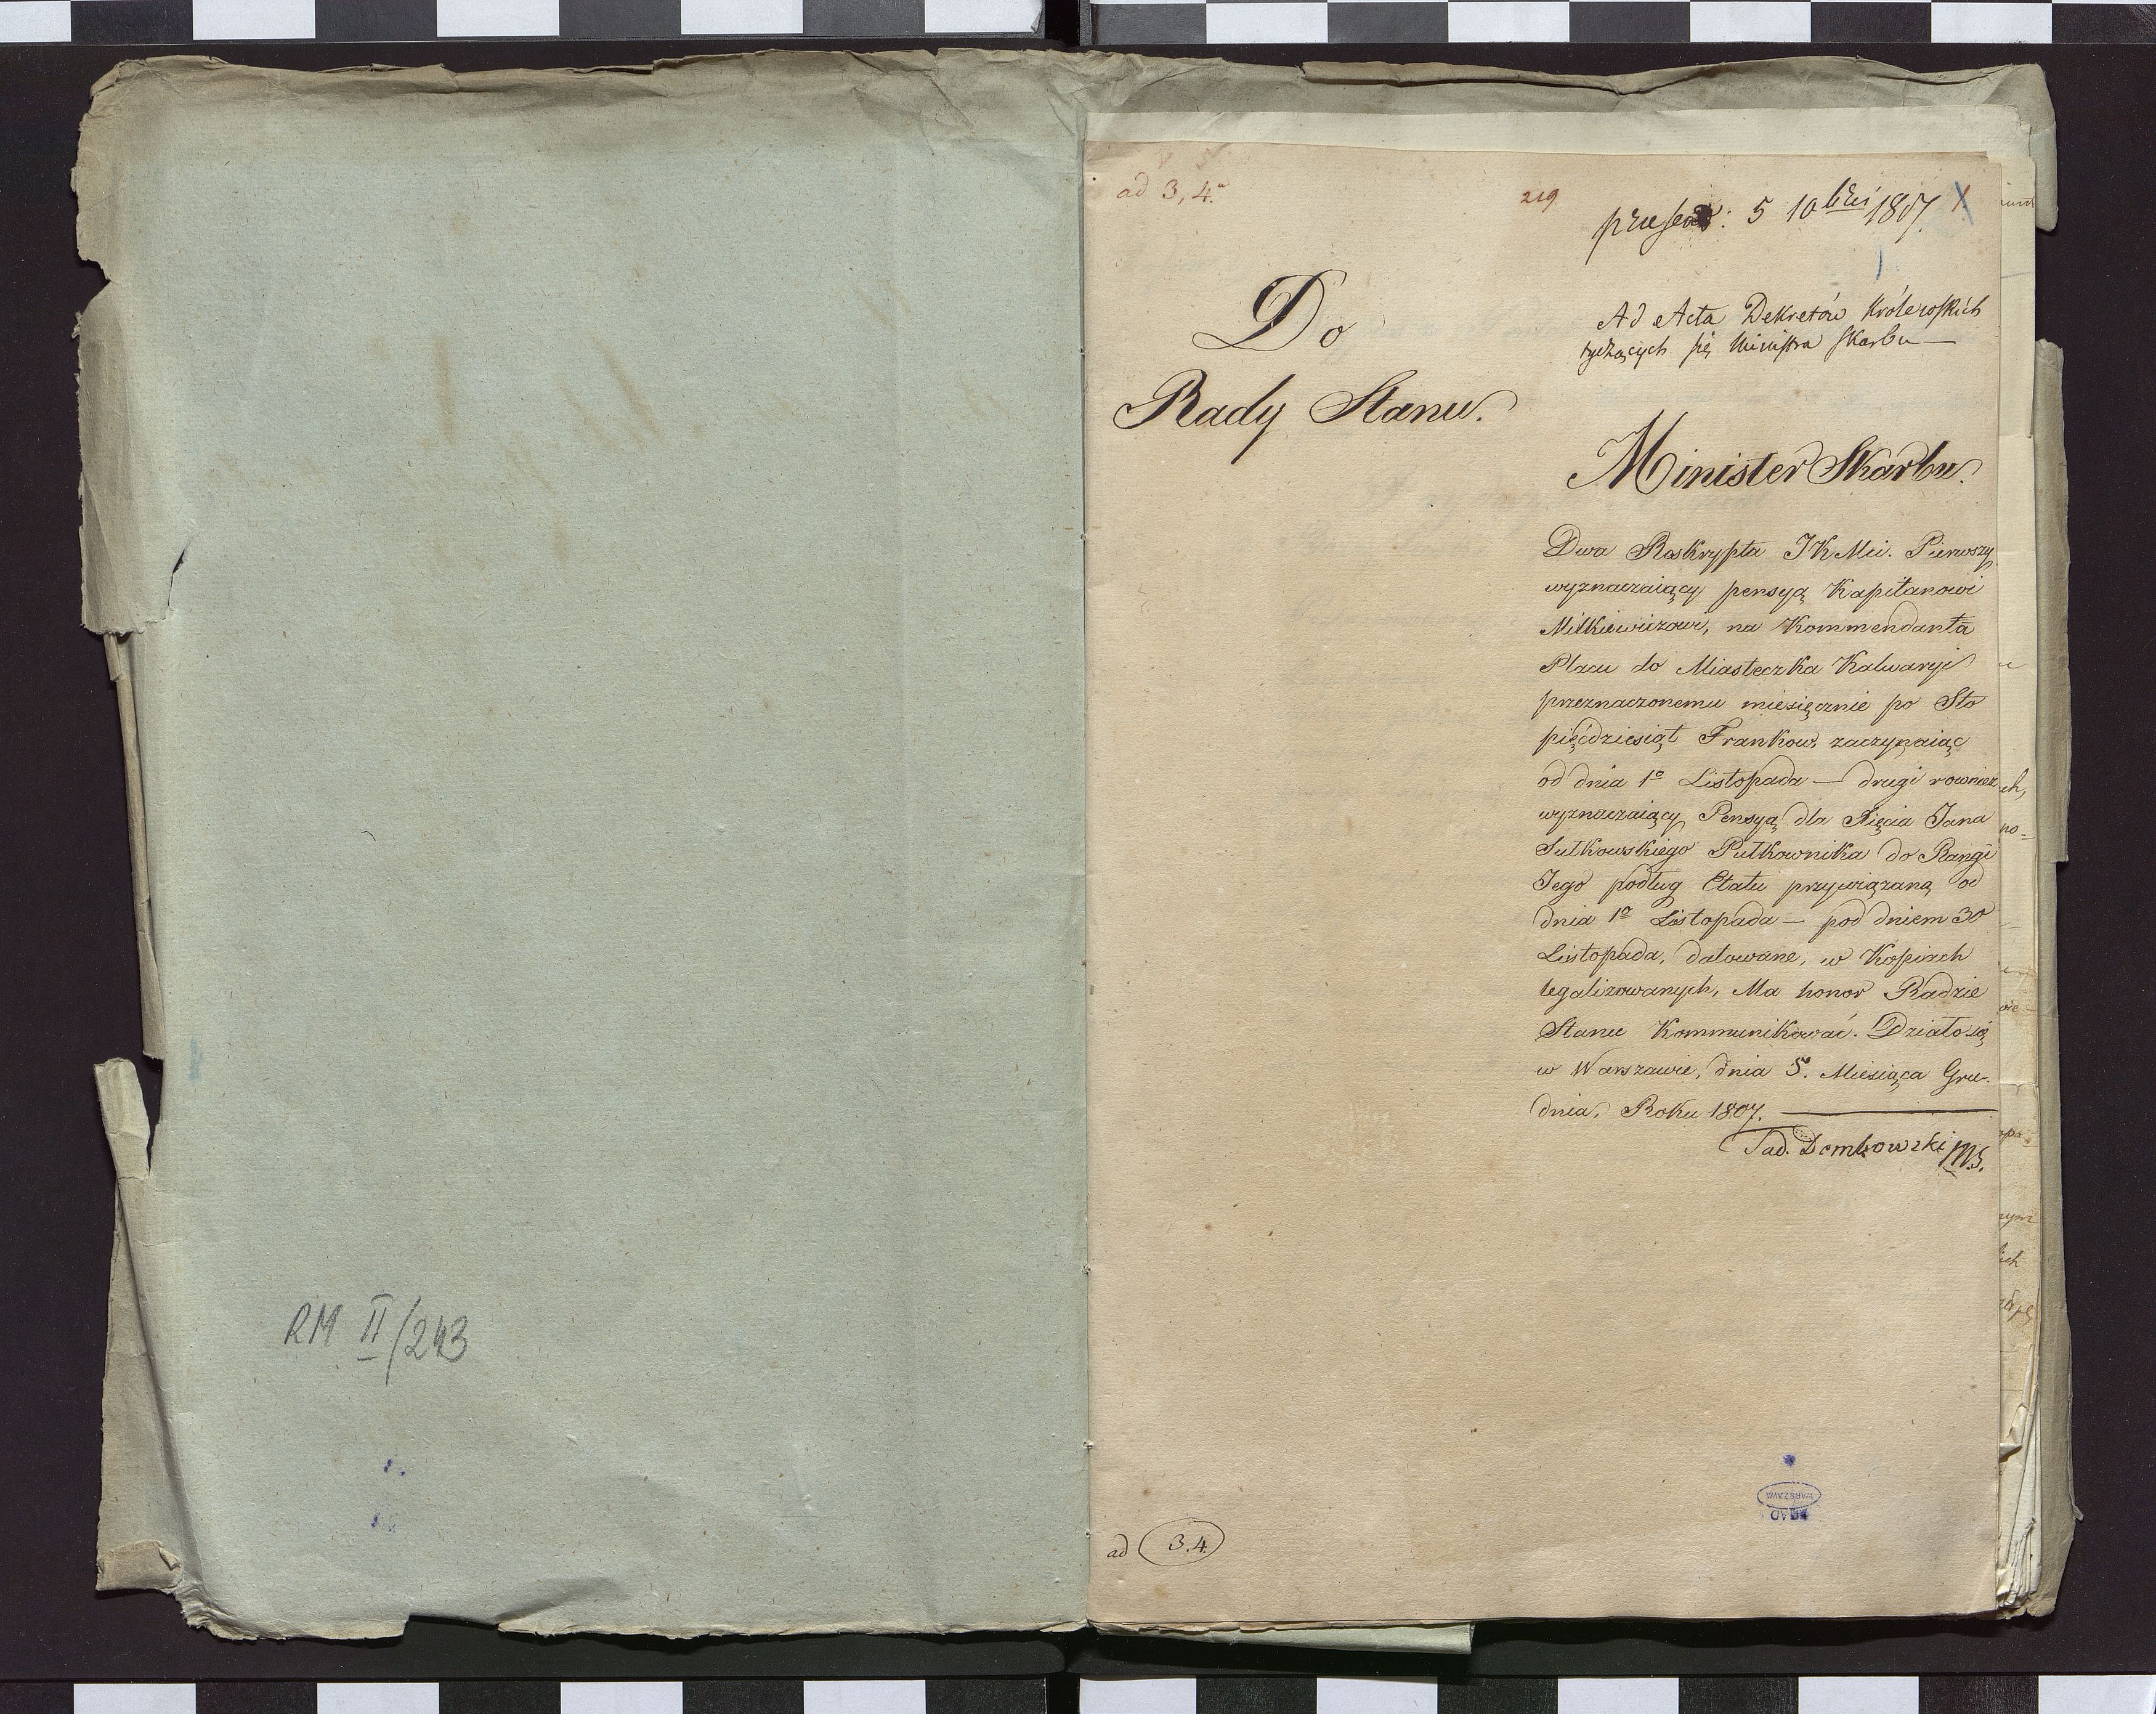 RM II/243
ad 3, 4.
219
5 10bris 1807.
Do
Rady Stanu.
Ad Acta Dekretów Królewskich
tyczących się Ministra Skarbu —
Minister Skarbu.
Dwa Reskrypta JKMci. Pierwszy
wyznaczaiący pensyą Kapitanowi
Milkiewiczowi, na Kommendanta
Placu do Miasteczka Kalwaryi
przeznaczonemu miesięcznie po Sto
pięćdziesiąt Frankow, zaczynaiąc
od dnia 1º Listopada — drugi rownież
wyznaczaiący Pensyą dla Xięcia Jana
Sułkowskiego Pułkownika do Rangi
Jego podług Etatu przywiązaną od
dnia 1º Listopada — pod dniem 30
Listopada, datowane, w Kopiach
legalizowanych, Ma honor Radzie
Stanu Kommunikować. Działo się
w Warszawie, dnia 5. Miesiąca Gru-
dnia, Roku 1807.
Tad. Dembowski MS.
AGAD
WARSZAWA
ad 3.4.